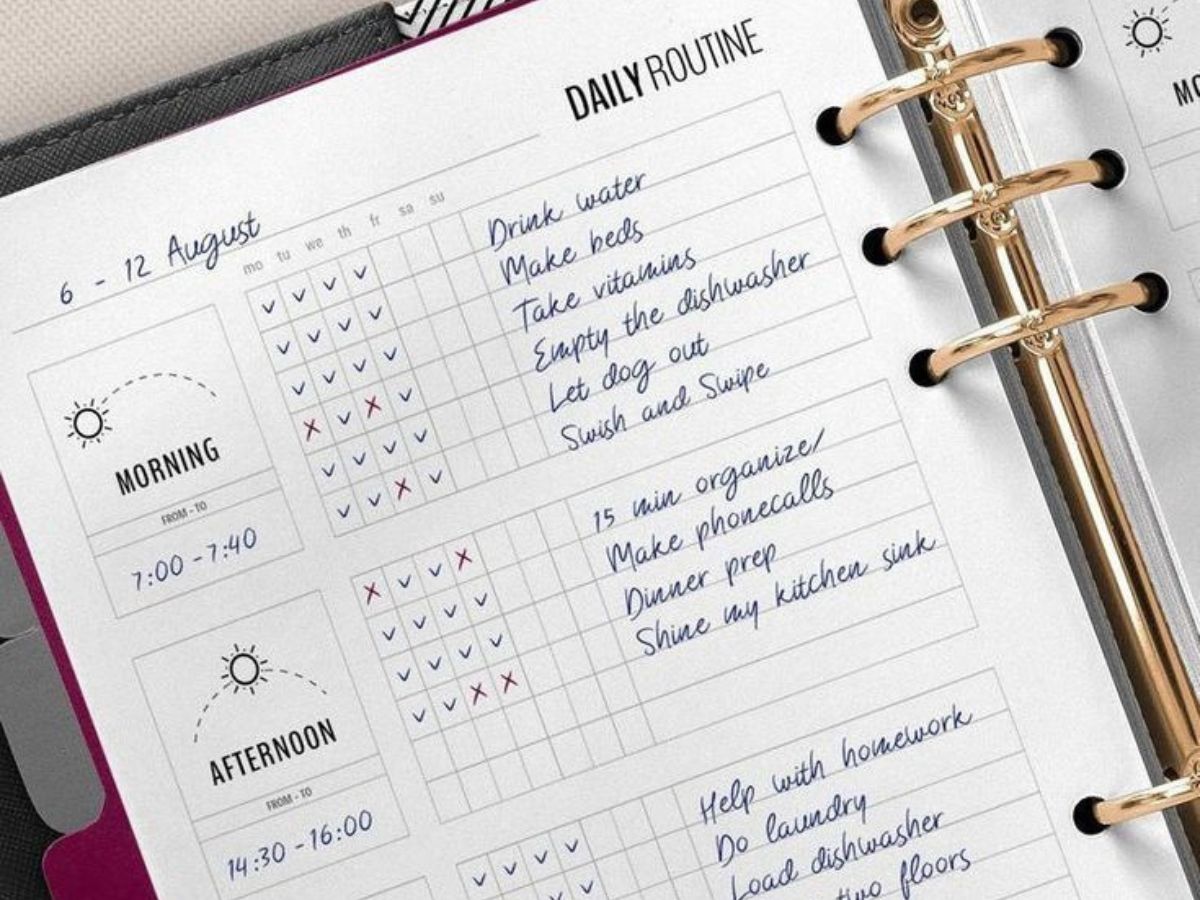 DAILY ROUTINE
6 - 12 August
mo tu we th fr sa su
Drink water
Make beds
Take vitamins
Empty the dishwasher
Let dog out
Swish and Swipe
MORNING
FROM - TO
7:00 - 7:40
15 min organize/
Make phonecalls
Dinner prep
Shine my kitchen sink
AFTERNOON
FROM - TO
14:30 - 16:00
Help with homework
Do laundry
Load dishwasher
two floors
MO